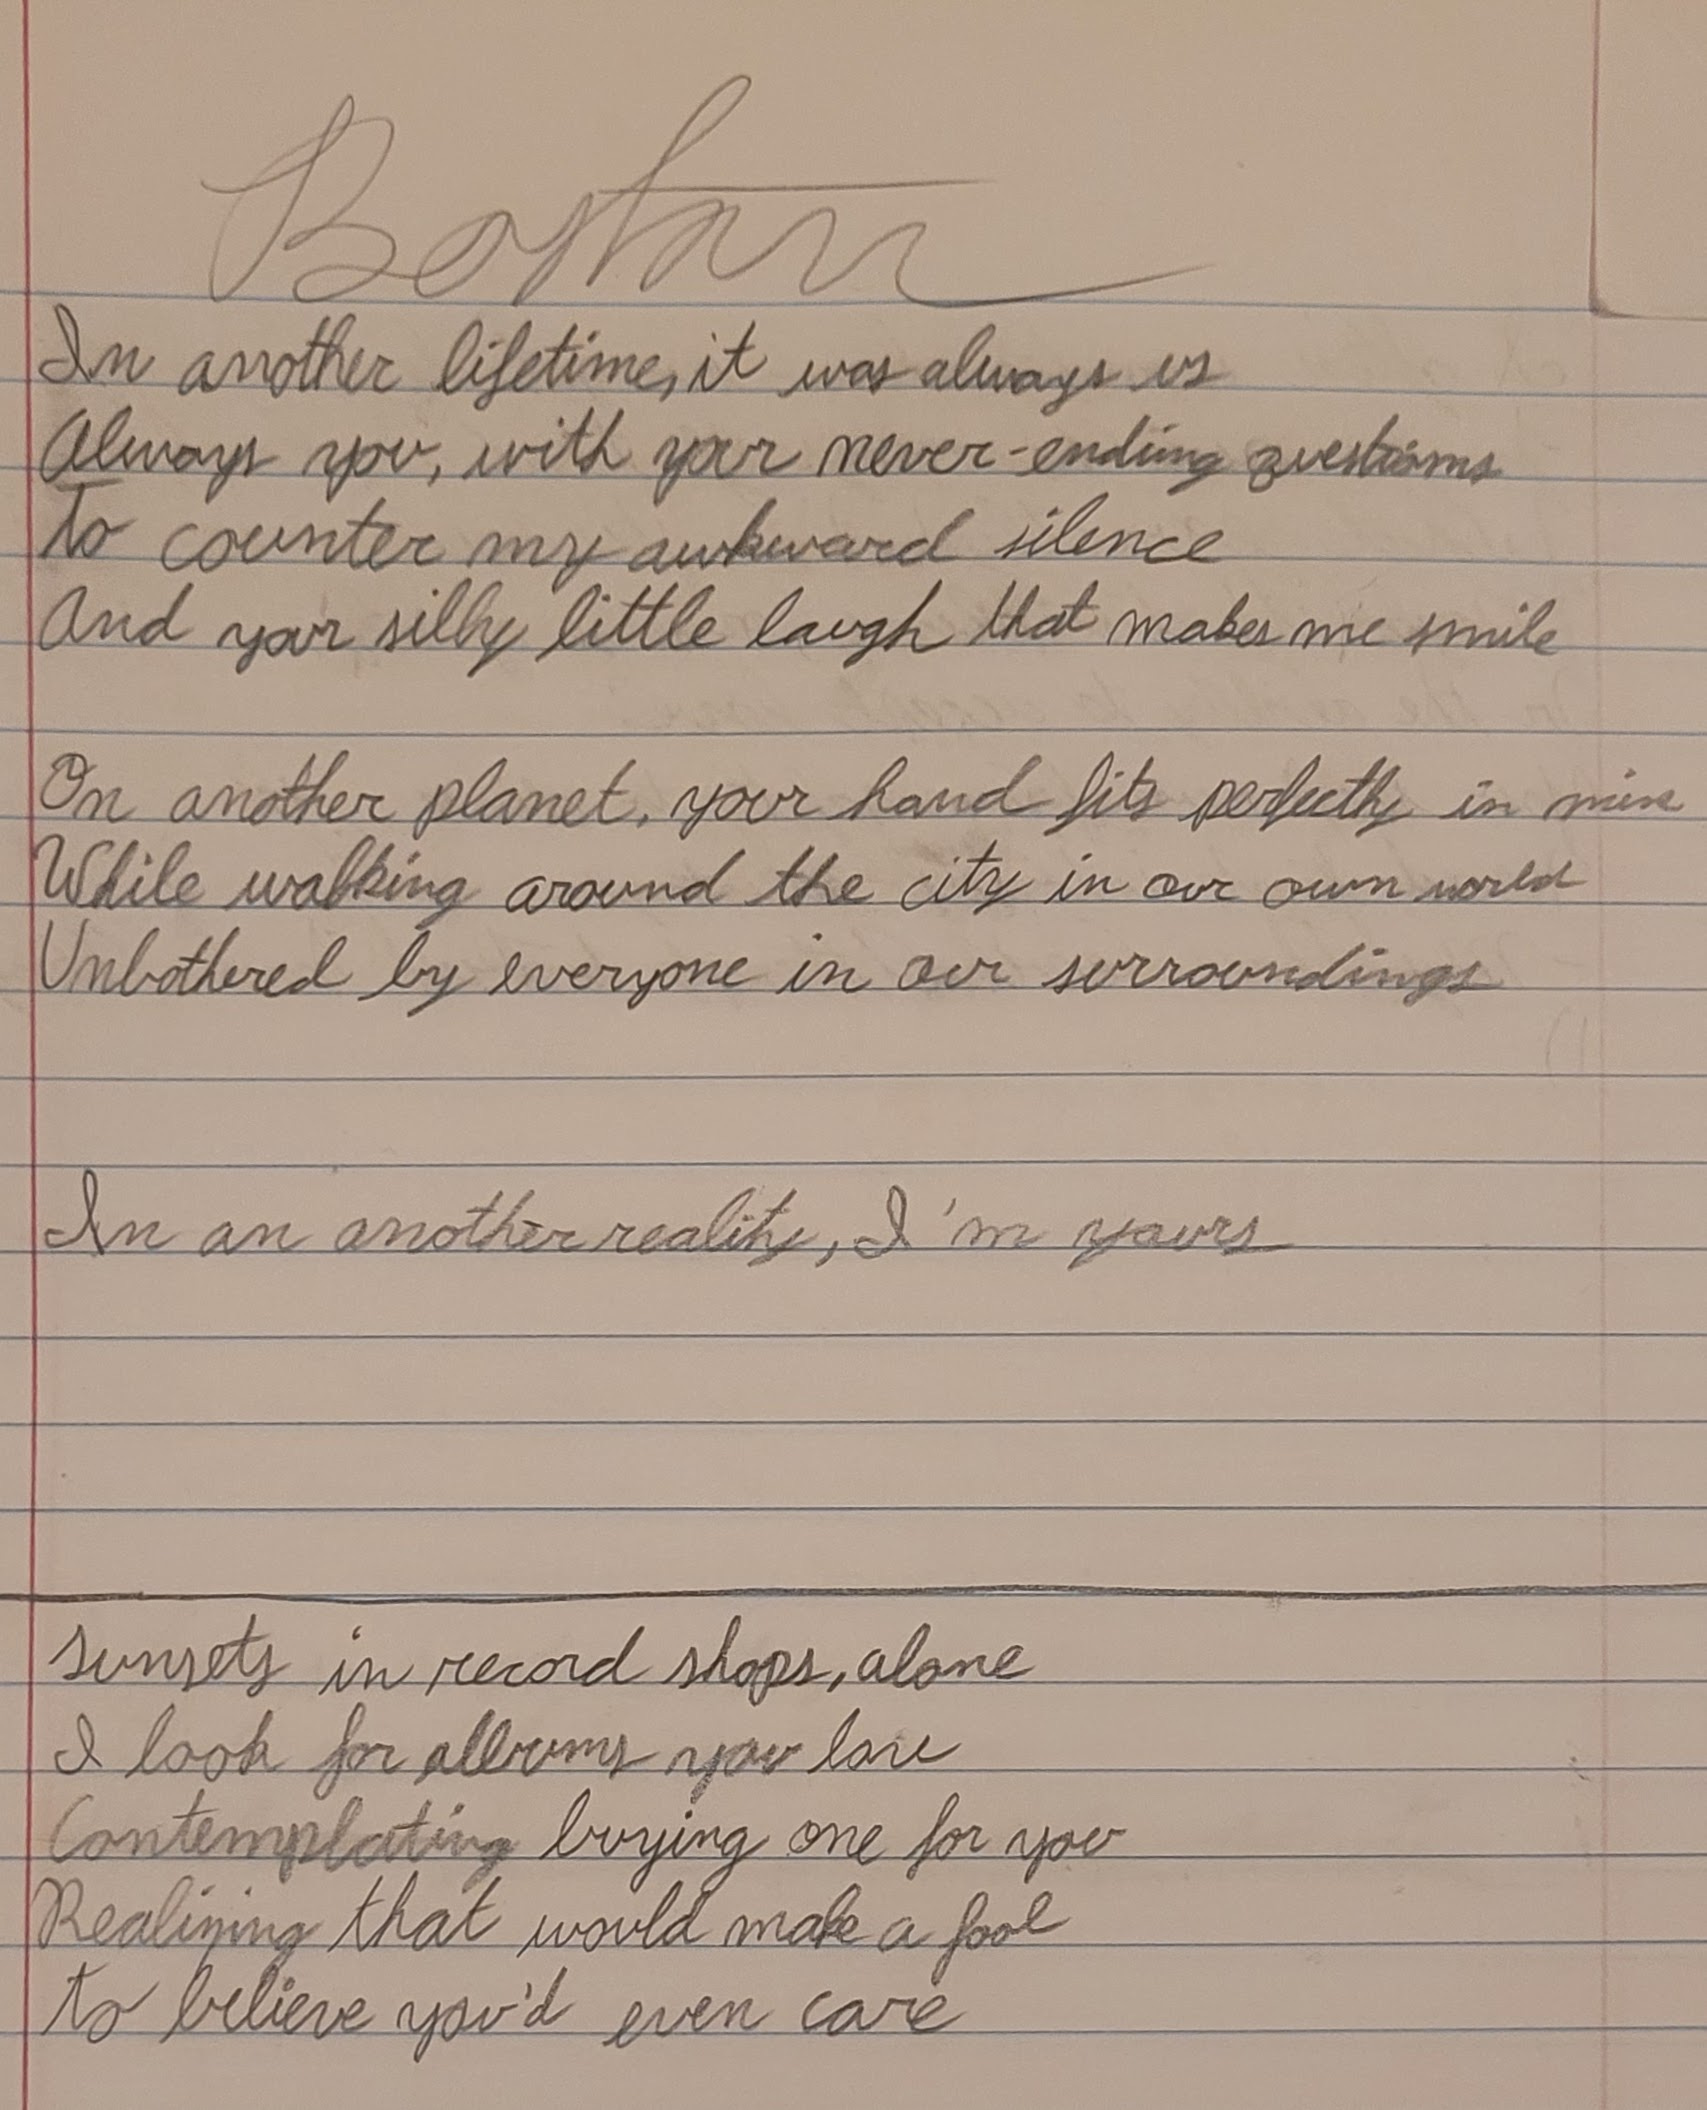 Boston
In another lifetime, it was always us
Always you, with your never-ending questions
To counter my awkward silence
And your silly little laugh that makes me smile
On another planet, your hand fits perfectly in mine
While walking around the city in our own world
Unbothered by everyone in our surroundings
In an another reality, I'm yours
Sunsets in record shops, alone
I look for albums you love
Contemplating buying one for you
Realizing that would make a fool
to believe you'd even care